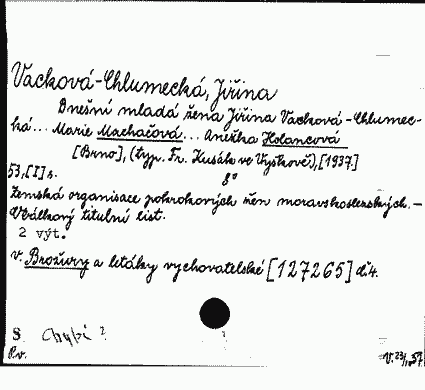 Vacková-Chlumecká, Jiřina
Dnešní mladá žena Jiřina Vacková-Chlumec-
ká... Marie Machačová... Anežka Holancová
[Brno], (typ. Fr. Kusák ve Vyškově), [1937.]
53, [I] s. 8°
Zemská organisace pokrokových žen moravskoslezských. -
Obálkový titulní list.
2 výt.
v. Brožury a letáky vychovatelské [127265] č. 4.
S Chybí ?
Rv. V. 37.